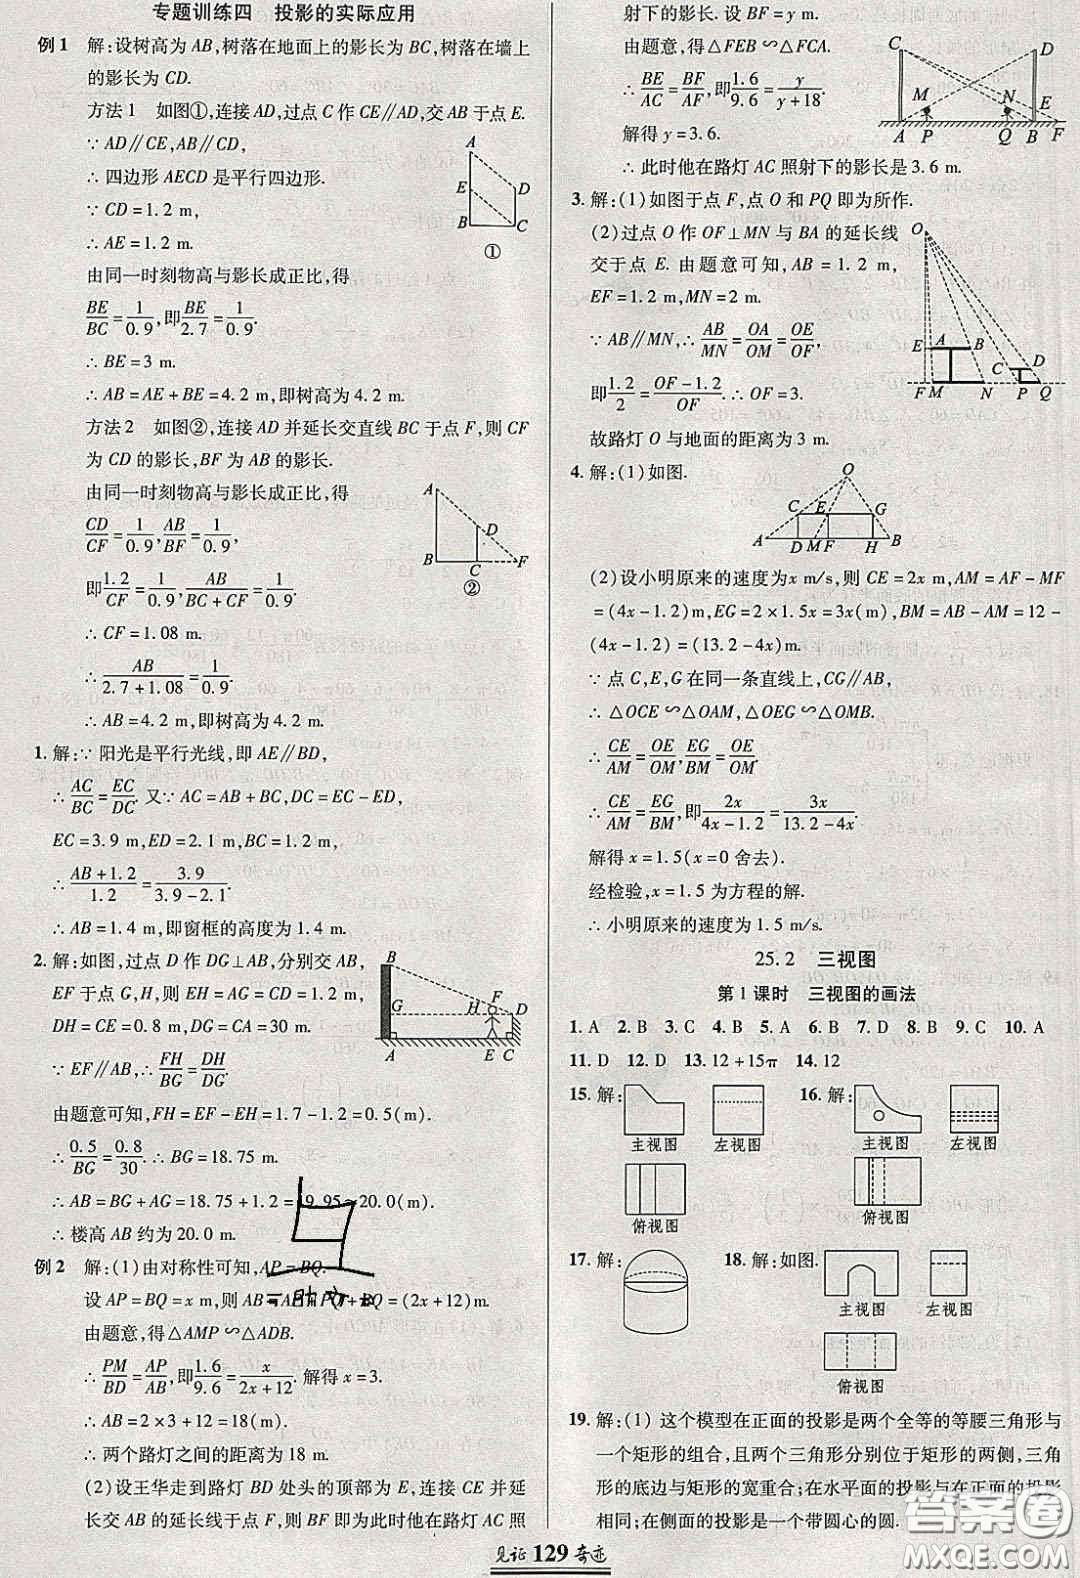 专题训练四 投影的实际应用
例1 解:设树高为 AB,树落在地面上的影长为 BC,树落在墙上
的影长为 CD.
方法1 如图①,连接 AD,过点 C 作 CE∥AD,交 AB 于点 E.
∵ AD∥CE,AB∥CD,
∴ 四边形 AECD 是平行四边形.
∵ CD=1.2 m,
∴ AE=1.2 m.
A
E
D
B
C
①
由同一时刻物高与影长成正比,得
BE/BC=1/0.9,即BE/2.7=1/0.9.
∴ BE=3 m.
∴ AB=AE+BE=4.2 m,即树高为 4.2 m.
方法2 如图②,连接 AD 并延长交直线 BC 于点 F,则 CF
为 CD 的影长,BF 为 AB 的影长.
由同一时刻物高与影长成正比,得
CD/CF=1/0.9,AB/BF=1/0.9,
即1.2/CF=1/0.9,AB/(BC+CF)=1/0.9.
∴ CF=1.08 m.
∴ AB/(2.7+1.08)=1/0.9.
∴ AB=4.2 m,即树高为 4.2 m.
A
D
B
C
F
②
1. 解:∵ 阳光是平行光线,即 AE∥BD,
∴ AC/BC=EC/DC. 又∵ AC=AB+BC,DC=EC-ED,
EC=3.9 m,ED=2.1 m,BC=1.2 m,
∴ (AB+1.2)/1.2=3.9/(3.9-2.1).
∴ AB=1.4 m,即窗框的高度为 1.4 m.
2. 解:如图,过点 D 作 DG⊥AB,分别交 AB,
EF 于点 G,H,则 EH=AG=CD=1.2 m,
DH=CE=0.8 m,DG=CA=30 m.
∵ EF∥AB,∴ FH/BG=DH/DG.
由题意可知,FH=EF-EH=1.7-1.2=0.5(m).
∴ 0.5/BG=0.8/30. ∴ BG=18.75 m.
∴ AB=BG+AG=18.75+1.2=19.95≈20.0(m).
∴ 楼高 AB 约为 20.0 m.
B
F
G
H
D
A
E
C
例2 解:(1)由对称性可知,AP=BQ.
设 AP=BQ=x m,则 AB=AP+PQ+BQ=(2x+12)m.
由题意,得△AMP∽△ADB.
∴ PM/BD=AP/AB,即1.6/9.6=x/(2x+12). 解得 x=3.
∴ AB=2×3+12=18(m).
∴ 两个路灯之间的距离为 18 m.
(2)设王华走到路灯 BD 处头的顶部为 E,连接 CE 并延
长交 AB 的延长线于点 F,则 BF 即为此时他在路灯 AC 照
射下的影长. 设 BF=y m.
由题意,得△FEB∽△FCA.
∴ BE/AC=BF/AF,即1.6/9.6=y/(y+18).
解得 y=3.6.
∴ 此时他在路灯 AC 照射下的影长是 3.6 m.
C
D
M
N
E
A
P
Q
B
F
3. 解:(1)如图于点 F,点 O 和 PQ 即为所作.
(2)过点 O 作 OF⊥MN 与 BA 的延长线
交于点 E. 由题意可知,AB=1.2 m,
EF=1.2 m,MN=2 m.
∵ AB∥MN,∴ AB/MN=OA/OM=OE/OF,
即1.2/2=(OF-1.2)/OF. ∴ OF=3.
故路灯 O 与地面的距离为 3 m.
O
E
A
B
C
D
F
M
N
P
Q
4. 解:(1)如图.
O
C
E
G
A
D
M
F
H
B
(2)设小明原来的速度为 x m/s,则 CE=2x m,AM=AF-MF
=(4x-1.2)m,EG=2×1.5x=3x(m),BM=AB-AM=12-
(4x-1.2)=(13.2-4x)m.
∵ 点 C,E,G 在同一条直线上,CG∥AB,
∴ △OCE∽△OAM,△OEG∽△OMB.
∴ CE/AM=OE/OM,EG/BM=OE/OM.
∴ CE/AM=EG/BM,即2x/(4x-1.2)=3x/(13.2-4x).
解得 x=1.5(x=0 舍去).
经检验,x=1.5 为方程的解.
∴ 小明原来的速度为 1.5 m/s.
25.2 三视图
第1课时 三视图的画法
1. A 2. B 3. C 4. B 5. A 6. B 7. D 8. B 9. C 10. A
11. D 12. D 13. 12+15π 14. 12
15. 解:
主视图 左视图
俯视图
16. 解:
主视图 左视图
俯视图
17. 解:
18. 解:如图.
主视图 左视图
俯视图
19. 解:(1) 这个模型在正面的投影是两个全等的等腰三角形与
一个矩形的组合,且两个三角形分别位于矩形的两侧,三角
形的底边与矩形的宽重合;在水平面的投影与在正面的投影
相同;在侧面的投影是一个带圆心的圆.
答案圈
MXQE.COM
见证 129 奇迹